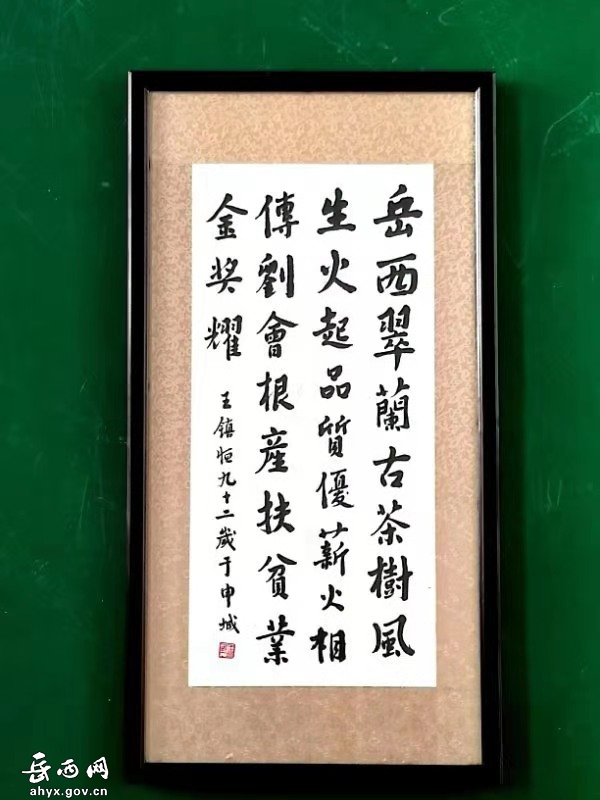 岳西翠蘭古茶樹風
生火起品質優薪火相
傳劉會根産扶貧業
金奖耀
王鎮恒九十二歲于申城
岳西网
ahyx.gov.cn